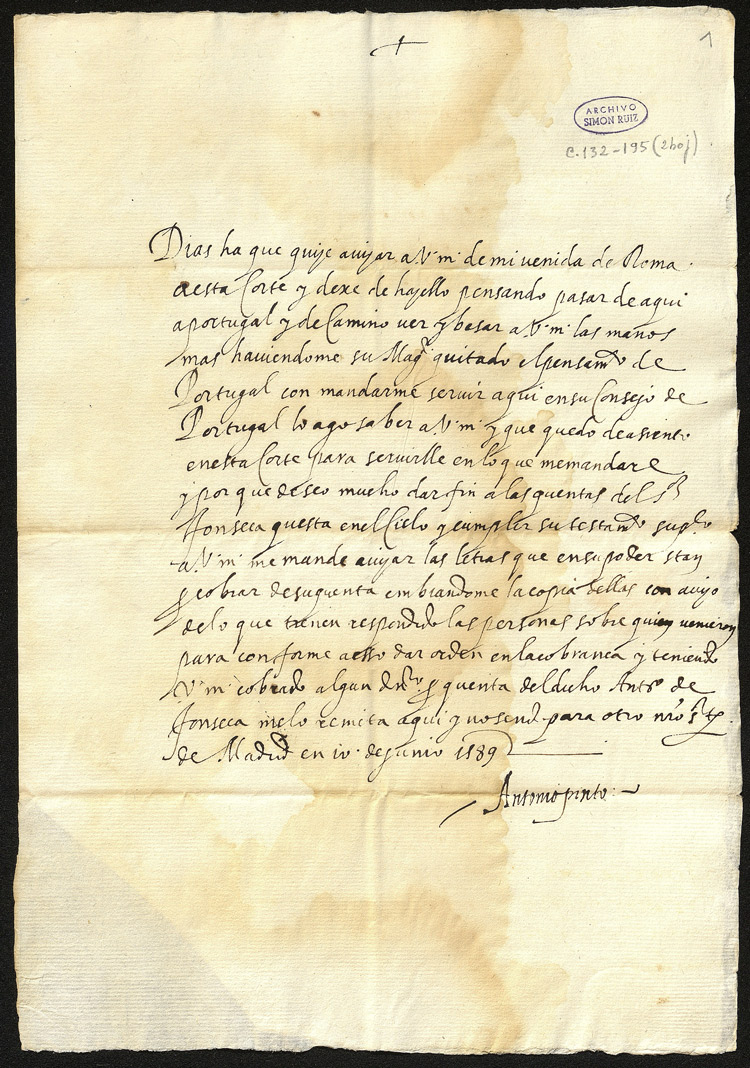 1
ARCHIVO
SIMON RUIZ
C.132-195 (2hoj)
Dias ha que quise avisar a V. m. de mi venida de Roma
a esta Corte y dexe de hazello pensando pasar de aqui
a portugal y de Camino ver y besar a V. m. las manos
mas haviendome su Magᵈ quitado el pensamᵗᵒ de
Portugal con mandarme servir aqui en su Consejo de
Portugal lo ago saber a V. m. y que quedo de asiento
en esta Corte para servirlle en lo que me mandare
y por que deseo mucho dar fin a las quentas del sʳ
fonseca questa en el Cielo y cumplir su testamᵗᵒ supᶜᵒ
a V. m. me mande avisar las letras que en su poder stan
p cobrar de su quenta embiandome la copia dellas con aviso
de lo que tienen respondido las personas sobre quien vinieron
para conforme a esso dar orden en la cobranca y teniendo
V. m. cobrado algun dnʳᵒ p quenta del dicho Antᵒ de
fonseca melo remita aqui y no send para otro nrõ sʳ
de Madrid en 10 de Junio 1589
Antonio pinto